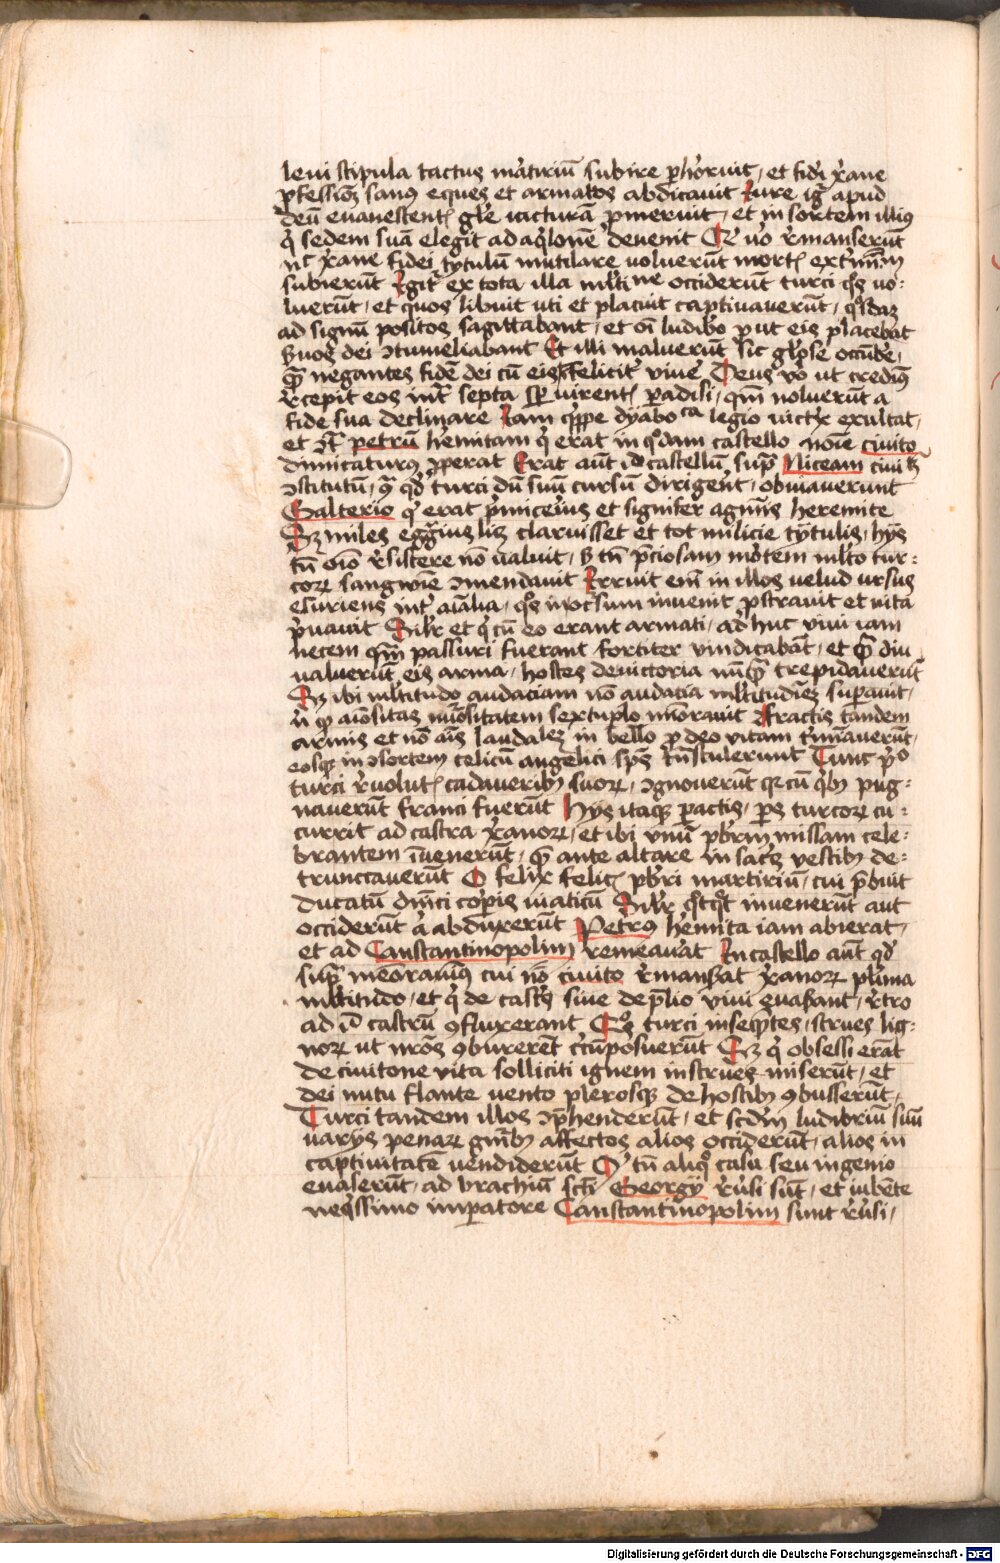 leui stipula tactus mr̃tiriũ subire ꝑhorruit, et fidei xp̃ane
ꝓfessionẽ sanus eques et armatos abdicauit Iure igr̃ apud
deũ euanescentẽ gl̃e iacturã ꝓmeruit, et in sortem illius
q̇ sedem suã elegit ad aq̇lonẽ deuenit Qui uº rẽmanserũt
nec xp̃ane fidei tytulũ mutilare uoluerũt mortẽ
subierũt Igit᷑ ex tota illa multitudĩe occiderũt turci qͦs uo⸗
luerũt, et quos libuit uti et placuit captiuauerũt, qͦsdaz
ad signũ positos sagittabant, et oĩ ludibͦ ꝓut eis placebat
seruos dei ↄtumeliabant Et illi maluerũt sic glͦse occũbẽ,
qͣ negantes fidẽ dei cũ eis feliciter viuẽ Deus vº ut credimͥ
recepit eos intͣ septa sp̃ virentis ꝑadisi, qm̃ noluerũt a
fide sua declinare Iam qͥppe dyaboᶜᵃ legio uictͥx exultat,
et ↄtͣ petrũ hemitam q̇ erat in qͦdam castello noĩe ciuito
dimicaturus ꝓperat Erat aũt id castellũ supͣ Niceam ciuitẽ
ↄstitutũ, qͣ qd̃ turci dũ suũ cursũ dirigerẽt, obuiauerunt
Galterio q̇ erat pͥniceriͥus et signifer agminis heremite
Qui miles egregius lic᷑ claruisset et tot milicie tytulis, hijs
tñ oĩo resistere nõ ualuit, s̃ tñ p̃ciosam mortem multo tur⸗
coꝝ sangwĩe ↄmendauit Irruit em̃ in illos uelud ursus
esuriens int᷑ aĩalia, qͦs in occursum inuenit ꝓstrauit et uita
pͥuauit Sil̃r et q̇ cũ eo erant armati, ad huc viui iam
necem qm̃ passuri fuerant fortiter vindicabãt, et qͣ diu
ualuerũt eis arma, hostes de uictoria nũqͣ trepidauerũt
Sz ibi multitudo audaciam nõ audacia multitudinẽ suꝑauit,
armis et nõ aĩs laudabilit᷑ in bello ꝓ deo vitam t᷑minauerũt,
eosqꝫ in ↄsortem celicũ angelici sp̃s trãstulerunt Tunc pͥº
turci reuolutis cadaueribꝫ suoꝝ, ↄgnouerũt qꝛ cũ qͥbꝫ pug⸗
nauerũt franci fuerũt Hijs itaqꝫ ꝑactis, pars turcoꝝ cu⸗
currit ad castra xp̃anoꝝ, et ibi vnũ p̃brm̃ missam cele⸗
brantem ĩuenerũt, qm̃ ante altare in sacris vestibꝫ de⸗
truncauerũt O felix felicis p̃bri martiriũ, cui p̃buit
ducatũ dñici corꝑis uiaticũ Sil̃r qͦtqͦt inuenerũt aut
occiderũt aut abduxerũt Petrus hemita iam abierat,
et ad Constantinopolim remeauͣat In castello aũt qd̃
supͣ memorauimus cui nõ ciuito remanserat xp̃anoꝝ pl̃ima
multitudo, et q̇ de castris siue de p̃lio viui euaserant, retro
ad id castrũ ↄfluxerant Qͦs turci inseq̃ntes, strues lig⸗
noꝝ ut nr̃os ↄburerẽt circũposuerũt Sz q̇ obsessi erãt
de ciuitone vita solliciti ignem in strues miserũt, et
dei nutu flante uento plerosqꝫ de hostibꝫ ↄbusserũt,
Turci tandem illos ↄp̃henderũt, et scd̃m ludibriũ suũ
uarijs penaꝝ gñibꝫ affectos alios occiderũt, alios in
captiuitatẽ uendiderũt Qͥ tñ aliqͦ casu seu ingenio
euaserũt, ad brachiũ scͥ Georgij reuersi sũt, et iubẽte
neqͥssimo imꝑatore Constantinopolim sunt reuersi,
Digitalisierung gefördert durch die Deutsche Forschungsgemeinschaft - DFG